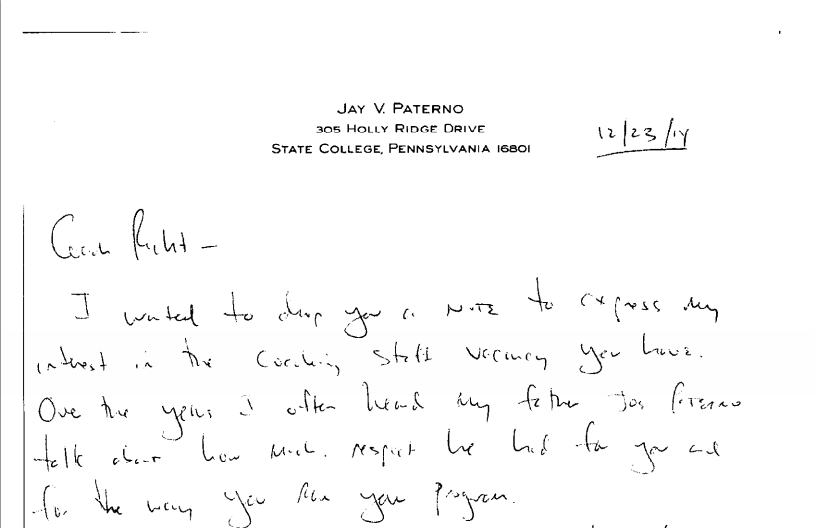 JAY V. PATERNO
305 HOLLY RIDGE DRIVE
STATE COLLEGE, PENNSYLVANIA 16801
12/23/14
Coach Right –
I wanted to drop you a NOTE to express my
interest in the Coaching Staff vacancy you have.
Over the years I often heard my father JOE PATERNO
talk about how much respect he had for you and
for the way you run your program.